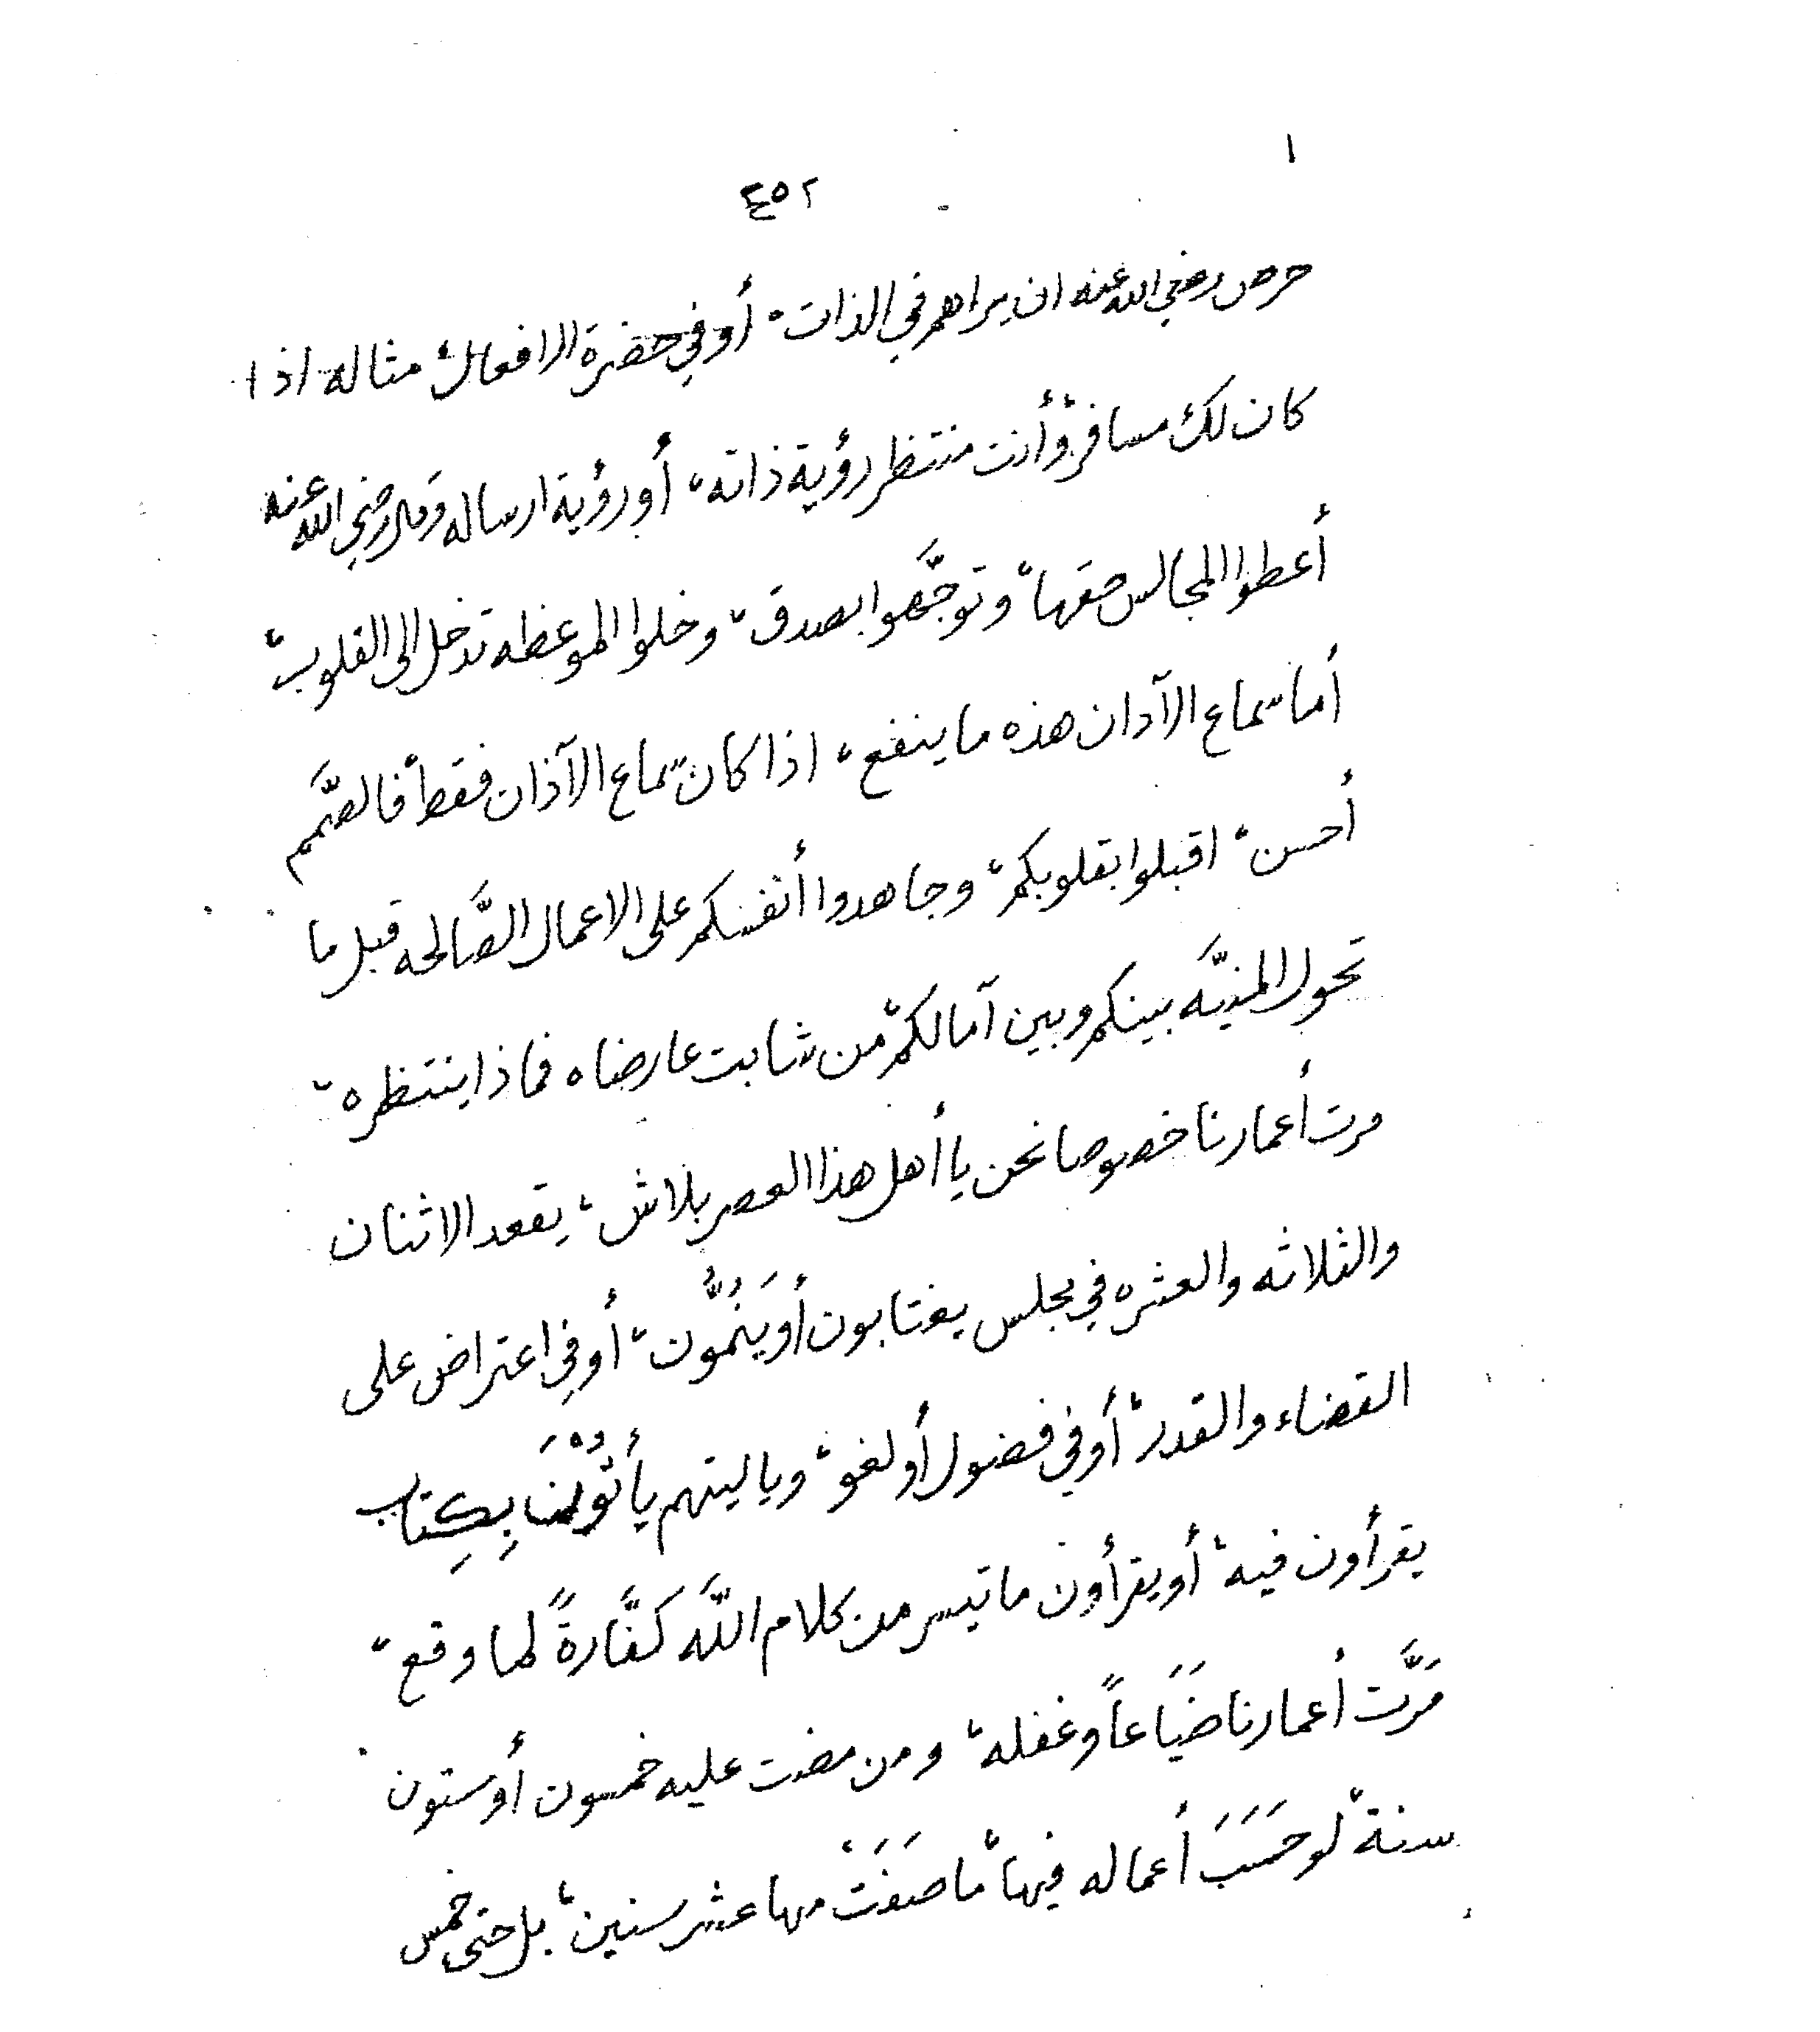 ٤٥٢
حرص رضي الله عنه ان يراهم في الذات، أو في حضرة الافعال، مثاله اذا
كان لك مسافر، وأنت منتظر رؤية ذاته، أو رؤية ارساله وقال رضي الله عنه
أعطوا المجالس حقها، وتوجَّهوا بصدق، وخلوا الموعظه تدخل الى القلوب،
أما سماع الآذان هذه ما ينفع، اذا كان سماع الآذان فقط، فالصَّمم
أحسن، اقبلوا بقلوبكم، وجاهدوا أنفسكم على الاعمال الصَّالحه قبل ما
تحول المنيَّه بينكم وبين آمالكم، من شابت عارضاه فماذا ينتظره،
مرت أعمارنا خصوصا نحن يا أهل هذا العصر بلاش، يقعد الاثنان
والثلاثه والعشره في مجلس يغتابون أو يَنُمُّون، أو في اعتراض على
القضاء والقدر، أو في فضول أو لغو، وياليتهم يأتُوْنَنَا بِكِتاب
يقرأون فيه، أو يقرأون ما تيسر من كلام اللَّه كَفَّارةً لما وقع،
مَرَّت أعمارنا ضَيَاعاً وغفله، ومن مضت عليه خمسون أو ستون
سنة، لو حَسَبَ أعماله فيها، ما صَفَتْ منها عشر سنين، بل حتى خمس